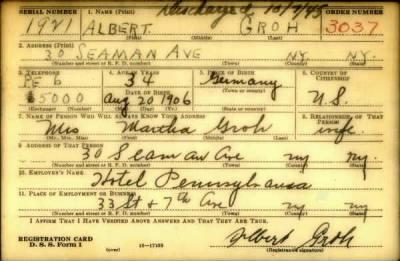 Discharged, 10/7/43
SERIAL NUMBER 1. NAME (Print) ORDER NUMBER
1921 ALBERT GROH 3037
(First) (Middle) (Last)
2. ADDRESS (Print)
30 SEAMAN AVE NY. NY.
(Number and street or R. F. D. number) (Town) (County) (State)
3. TELEPHONE 4. AGE IN YEARS 5. PLACE OF BIRTH 6. COUNTRY OF CITIZENSHIP
PE 6 34 Germany
DATE OF BIRTH (Town or county)
5000 Aug 20 1906 U.S.
(Exchange) (Number) (Mo.) (Day) (Yr.) (State or country)
7. NAME OF PERSON WHO WILL ALWAYS KNOW YOUR ADDRESS 8. RELATIONSHIP OF THAT PERSON
Mrs Martha Groh wife.
(Mr., Mrs., Miss) (First) (Middle) (Last)
9. ADDRESS OF THAT PERSON
30 Seaman Ave ny ny.
(Number and street or R. F. D. number) (Town) (County) (State)
10. EMPLOYER'S NAME
Hotel Pennsylvania
11. PLACE OF EMPLOYMENT OR BUSINESS
33 St + 7th Ave ny ny.
(Number and street or R. F. D. number) (Town) (County) (State)
I AFFIRM THAT I HAVE VERIFIED ABOVE ANSWERS AND THAT THEY ARE TRUE.
REGISTRATION CARD
D. S. S. Form 1 16—17105 Albert Groh
(Registrant's signature)